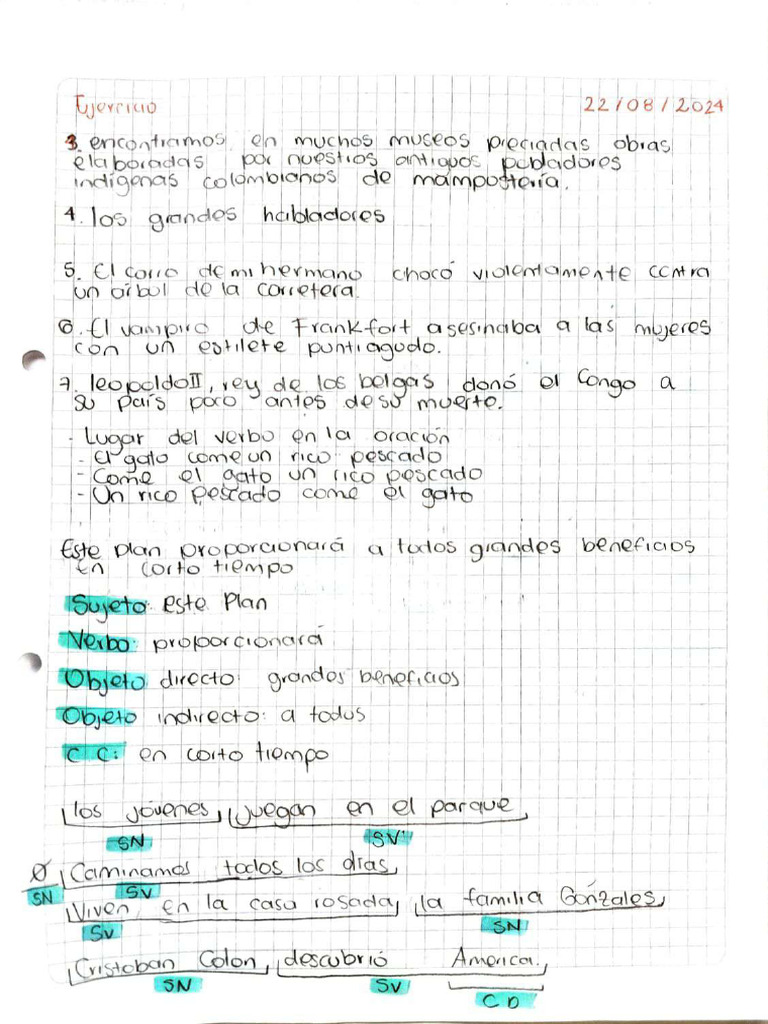 Ejercicio 22/08/2024
3. encontramos en muchos museos preciadas obras
elaboradas por nuestros antiguos pobladores
indígenas colombianos de mampostería.
4. los grandes habladores
5. El carro de mi hermano chocó violentamente contra
un árbol de la carretera.
6. El vampiro de Frankfort asesinaba a las mujeres
con un estilete puntiagudo.
7. leopoldo II, rey de los belgas donó el Congo a
su país poco antes de su muerte.
- Lugar del verbo en la oración
- El gato come un rico pescado
- Come el gato un rico pescado
- Un rico pescado come el gato
Este plan proporcionará a todos grandes beneficios
en corto tiempo
Sujeto: este Plan
Verbo: proporcionará
Objeto directo: grandes beneficios
Objeto indirecto: a todos
C C: en corto tiempo
los jóvenes juegan en el parque
SN SV
Ø Caminamos todos los días
SN SV
Viven en la casa rosada, la familia Gonzales
SV SN
Cristoban Colon descubrió America.
SN SV
CD